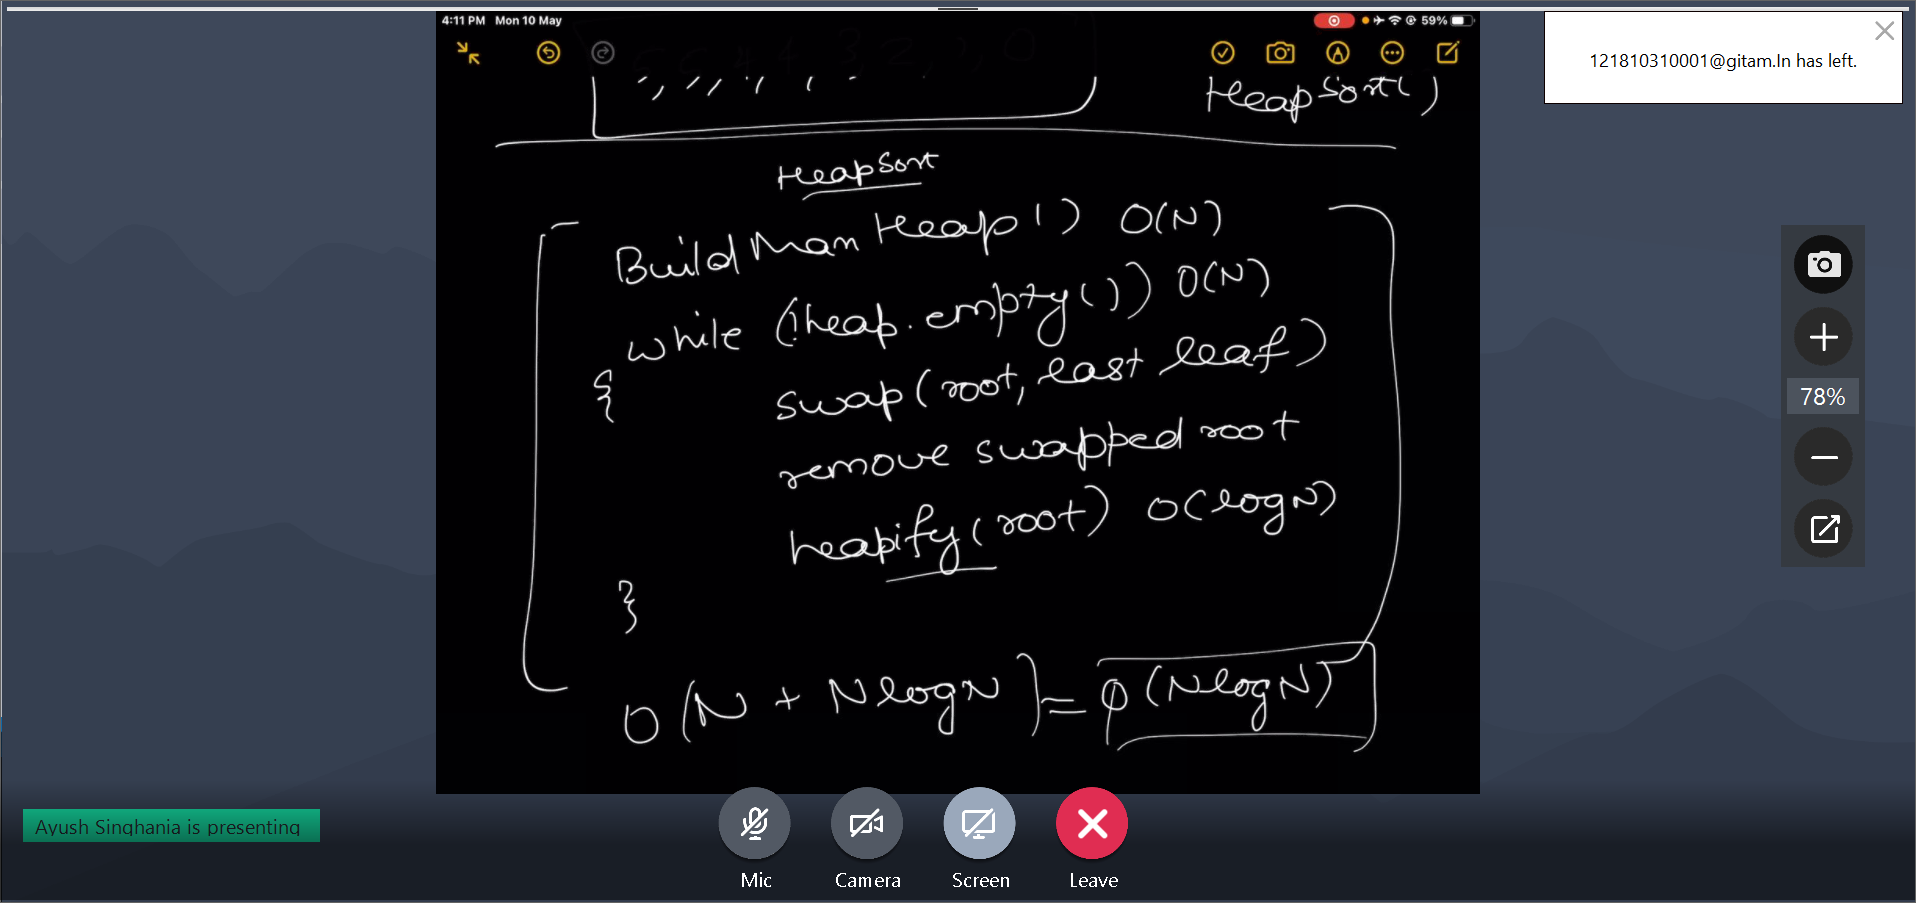 4:11 PM Mon 10 May
59%
121810310001@gitam.In has left.
HeapSort()
HeapSort
Build Max Heap() O(N)
while (!heap.empty()) O(N)
{
swap(root, last leaf)
remove swapped root
heapify(root) O(logN)
}
O(N + NlogN) = O(NlogN)
78%
Ayush Singhania is presenting
Mic Camera Screen Leave